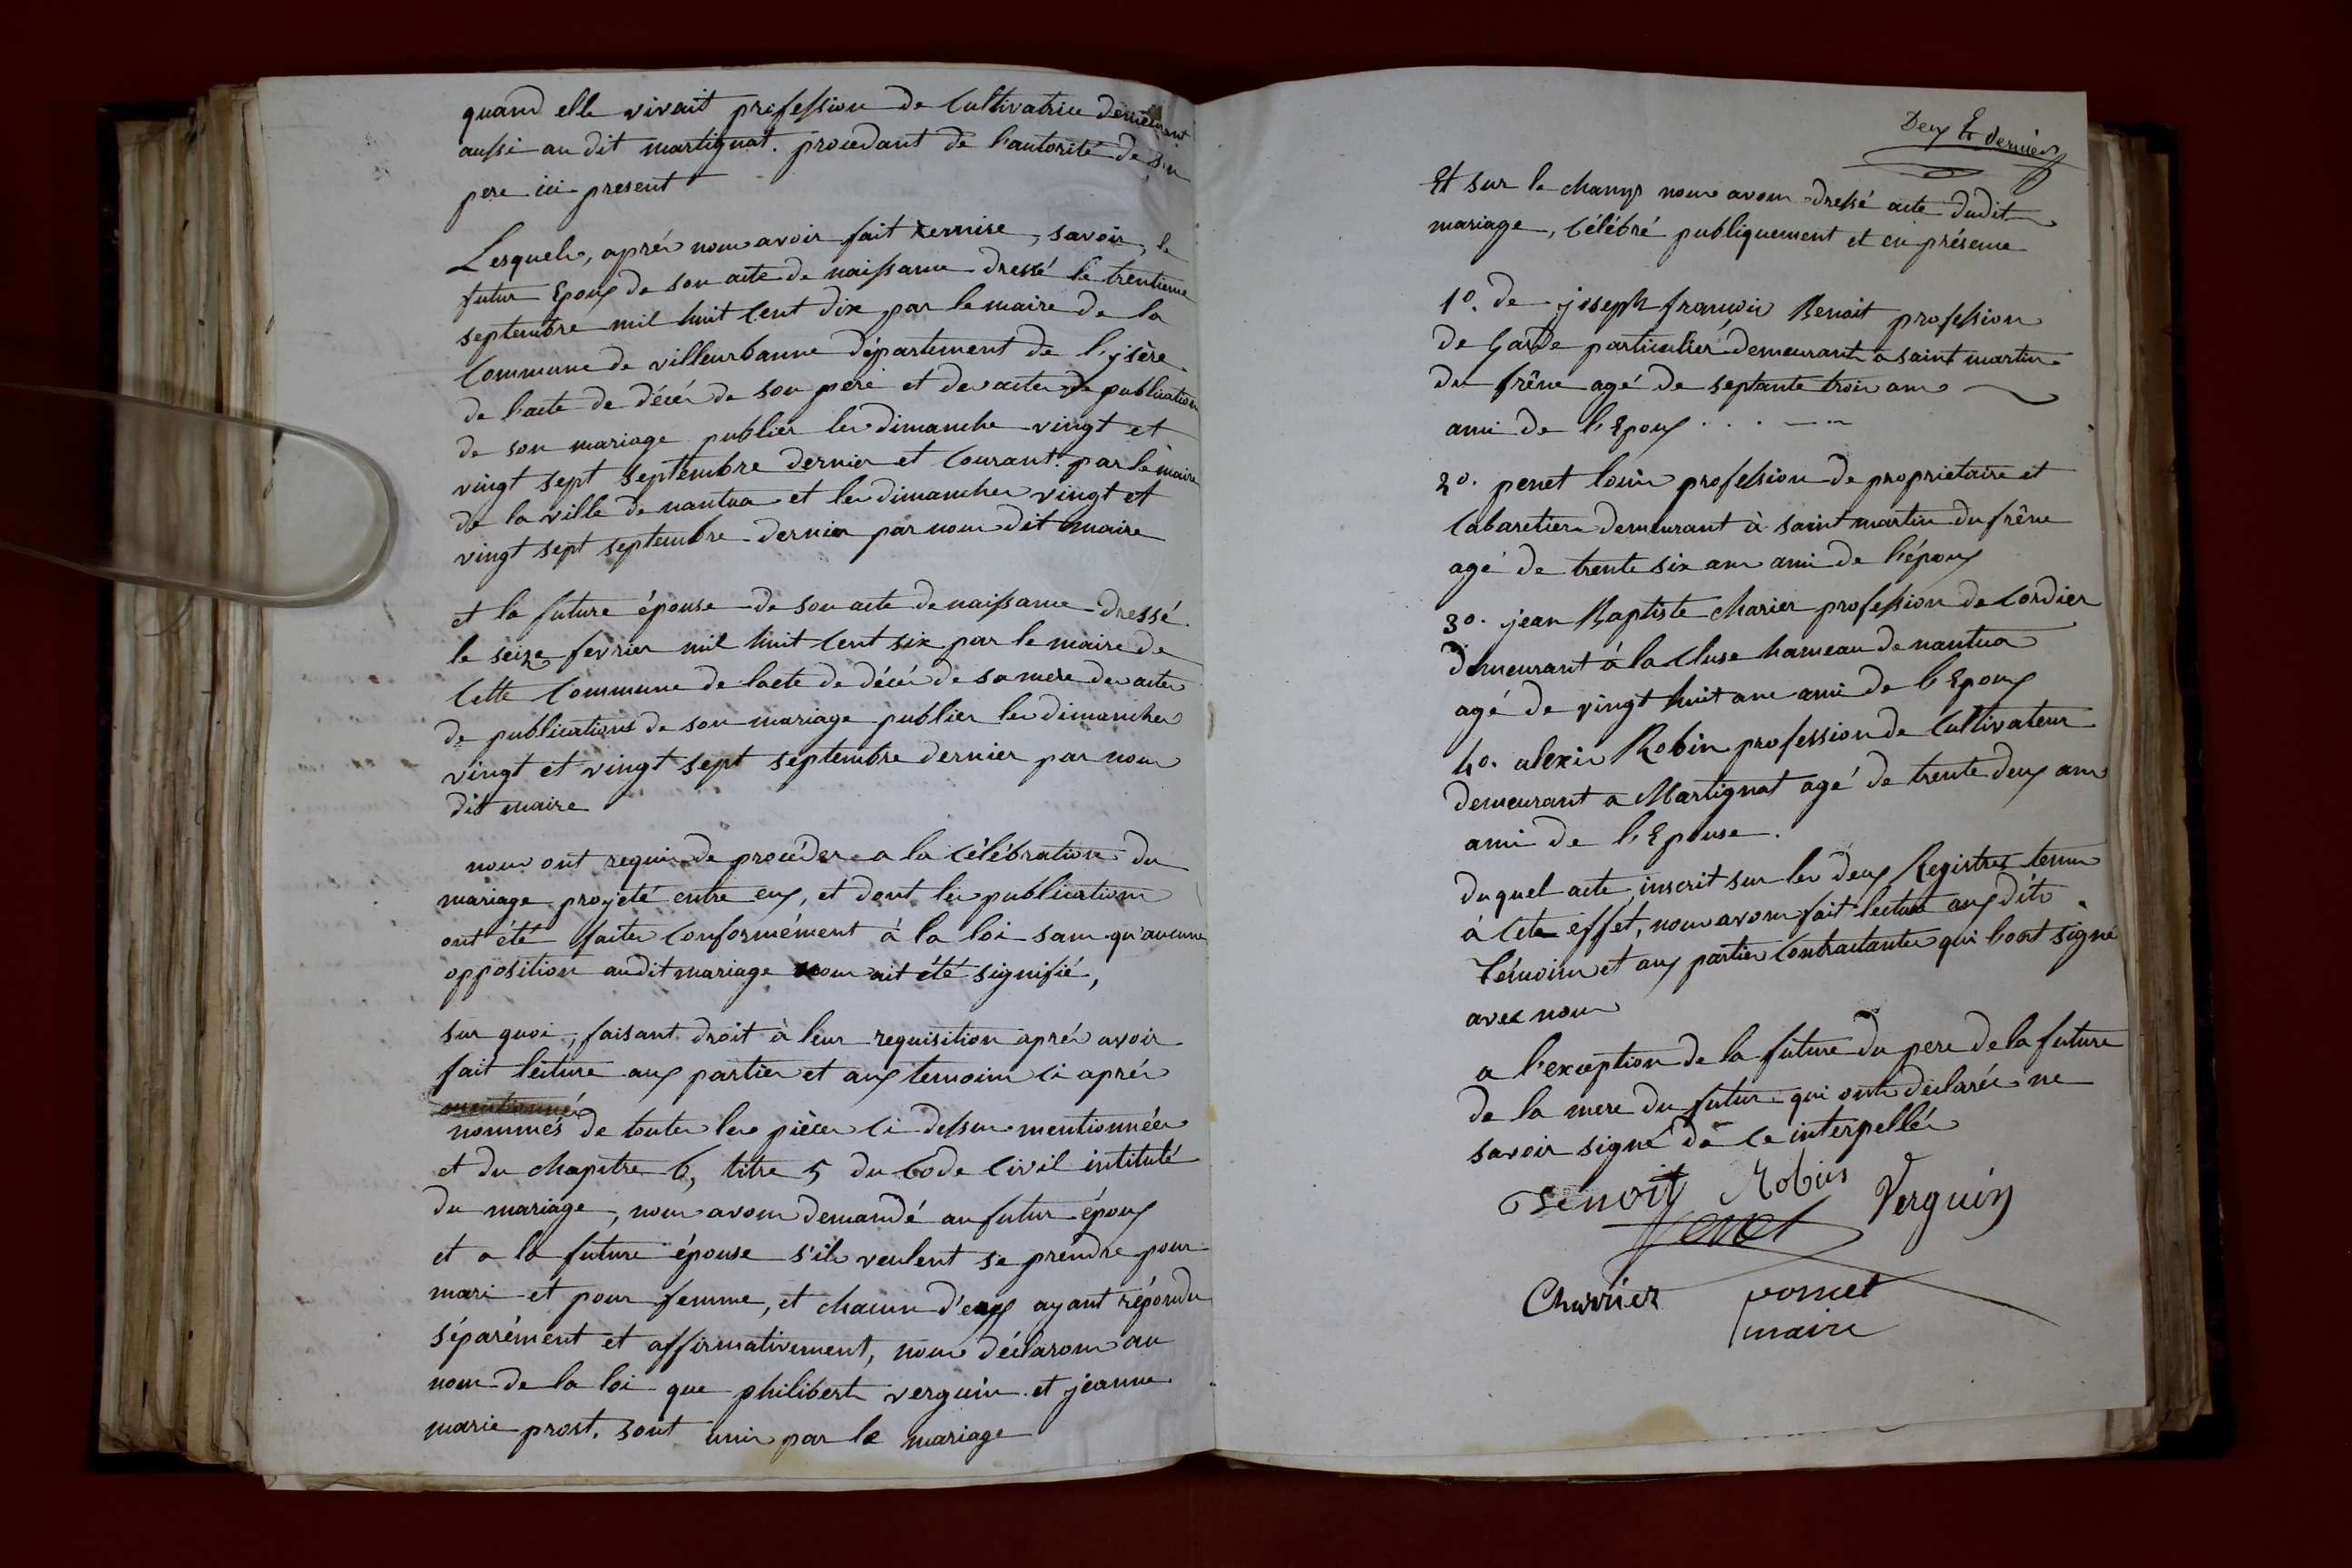 quand elle vivait profession de Cultivatrice demeurant
aussi au dit martignat. procedant de l'autorité de son
pere ici present
Lesquels, après nous avoir fait remise, savoir, le
futur Epoux de son acte de naissance dressé le trentieme
septembre mil huit Cent dix par le maire de la
Commune de villeurbanne département de l'ysère
de l'acte de décès de son pere et des actes de publication
de son mariage publier les dimanche vingt et
vingt sept septembre dernier et Courant. par le maire
de la ville de nantua et les dimanches vingt et
vingt sept septembre dernier par nous dit maire
et la future épouse de son acte de naissance dressé
le seize fevrier mil huit Cent six par le maire de
Cette Commune de lacte de décès de sa mere des actes
de publications de son mariage publier les dimanches
vingt et vingt sept septembre dernier par nous
dit maire
nous ont requis de procéder a la célébration du
mariage projeté entre eux, et dont les publications
ont été faites Conformément à la loi sans qu'aucune
opposition audit mariage nous ait été signifié,
sur quoi, faisant droit à leur requisition après avoir
fait lecture aux parties et aux temoins ci après
mentionnés
nommés de toutes les pièces ci dessus mentionnées
et du chapitre 6, titre 5 du Code Civil intitulé
du mariage, nous avons demandé au futur époux
et a la future épouse s'ils veulent se prendre pour
mari et pour femme, et chacun d'eux ayant répondu
séparément et affirmativement, nous déclarons au
nom de la loi que philibert verguin et jeanne
marie prost. sont unis par le mariage
Deux Et dernier
Et sur le champs nous avons dressé acte dudit
mariage, Célébré publiquement et en présence
1º. de joseph françois Benoit profession
de Garde particulier demeurant a saint martin
du frêne agé de septante trois ans
ami de l'Epoux
2º. penet louis profession de proprietaire et
Cabaretier demeurant à saint martin du frêne
agé de trente six ans ami de l'époux
3º. jean Baptiste charier profession de Cordier
demeurant à la Cluse hameau de nantua
agé de vingt huit ans ami de l'Epoux
4º. alexis Robin profession de Cultivateur
demeurant a Martignat agé de trente deux ans
ami de l'Epouse.
duquel acte, inscrit sur les deux Registres tenus
à cete effet, nous avons fait lecture aux dits
témoins et aux parties Contractantes qui l'ont signé
avec nous
a l'exception de la future du pere de la future
de la mere du futur qui ont déclarés ne
savoir signé de ce interpellés
Benoit Robin Verguin
Penet
Charrier poncet
maire